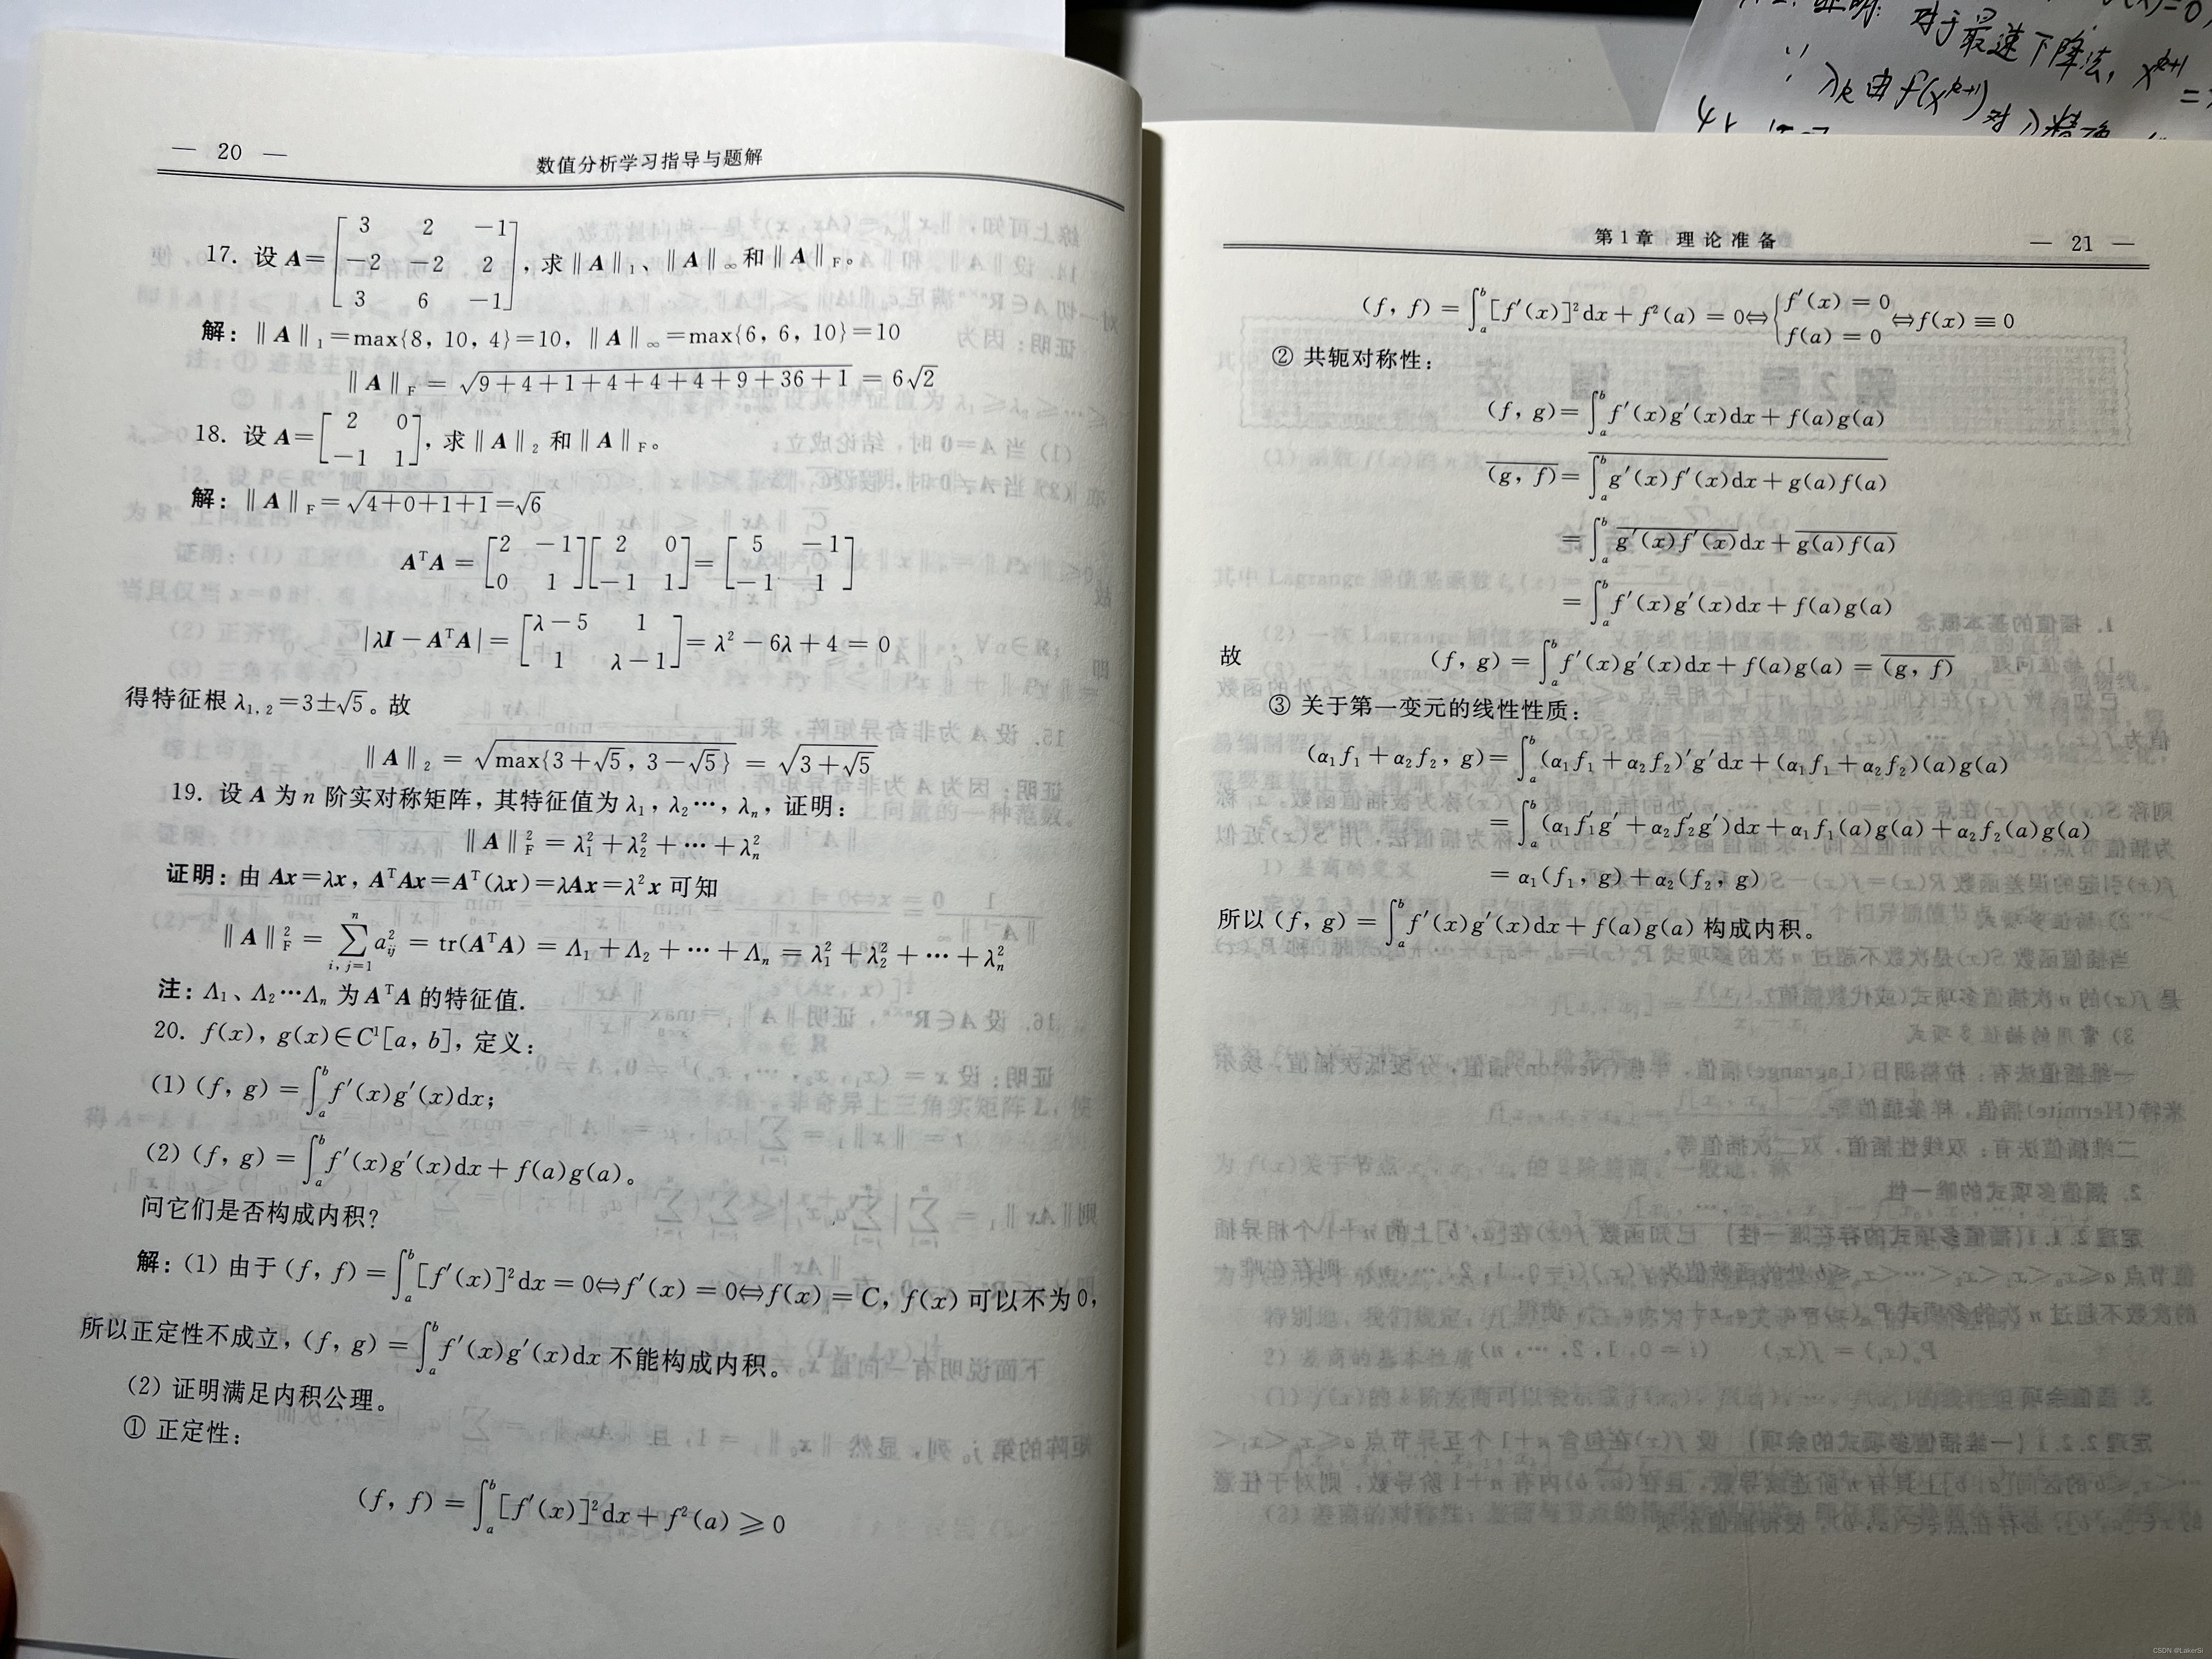 — 20 —
数值分析学习指导与题解
17. 设 A=[3 2 -1; -2 -2 2; 3 6 -1], 求‖A‖₁、‖A‖∞和‖A‖F。
解: ‖A‖₁=max{8, 10, 4}=10, ‖A‖∞=max{6, 6, 10}=10
‖A‖F = √(9+4+1+4+4+4+9+36+1) = 6√2
18. 设 A=[2 0; -1 1], 求‖A‖₂和‖A‖F。
解: ‖A‖F=√(4+0+1+1)=√6
AᵀA = [2 -1; 0 1][2 0; -1 1] = [5 -1; -1 1]
|λI-AᵀA| = [λ-5 1; 1 λ-1] = λ²-6λ+4 = 0
得特征根 λ₁,₂=3±√5。故
‖A‖₂ = √(max{3+√5, 3-√5}) = √(3+√5)
19. 设 A 为 n 阶实对称矩阵, 其特征值为 λ₁, λ₂…, λₙ, 证明:
‖A‖²F = λ₁²+λ₂²+…+λₙ²
证明: 由 Ax=λx, AᵀAx=Aᵀ(λx)=λAx=λ²x 可知
‖A‖²F = ∑ⁿᵢ,ⱼ₌₁ a²ᵢⱼ = tr(AᵀA) = Λ₁+Λ₂+…+Λₙ = λ₁²+λ₂²+…+λₙ²
注: Λ₁、Λ₂…Λₙ 为 AᵀA 的特征值.
20. f(x), g(x)∈C¹[a, b], 定义:
(1) (f, g) = ∫ₐᵇ f′(x)g′(x)dx;
(2) (f, g) = ∫ₐᵇ f′(x)g′(x)dx + f(a)g(a)。
问它们是否构成内积?
解: (1) 由于 (f, f) = ∫ₐᵇ [f′(x)]²dx = 0⇔f′(x) = 0⇔f(x) = C, f(x) 可以不为0,
所以正定性不成立, (f, g) = ∫ₐᵇ f′(x)g′(x)dx 不能构成内积。
(2) 证明满足内积公理。
① 正定性:
(f, f) = ∫ₐᵇ [f′(x)]²dx + f²(a) ⩾ 0
第1章 理论准备
— 21 —
(f, f) = ∫ₐᵇ [f′(x)]²dx + f²(a) = 0⇔{f′(x) = 0; f(a) = 0⇔f(x) ≡ 0
② 共轭对称性:
(f, g) = ∫ₐᵇ f′(x)g′(x)dx + f(a)g(a)
\overline{(g, f)} = \overline{∫ₐᵇ g′(x)f′(x)dx + g(a)f(a)}
= ∫ₐᵇ \overline{g′(x)f′(x)}dx + \overline{g(a)f(a)}
= ∫ₐᵇ f′(x)g′(x)dx + f(a)g(a)
故 (f, g) = ∫ₐᵇ f′(x)g′(x)dx + f(a)g(a) = \overline{(g, f)}
③ 关于第一变元的线性性质:
(α₁f₁+α₂f₂, g) = ∫ₐᵇ (α₁f₁+α₂f₂)′g′dx + (α₁f₁+α₂f₂)(a)g(a)
= ∫ₐᵇ (α₁f₁′g′+α₂f₂′g′)dx + α₁f₁(a)g(a) + α₂f₂(a)g(a)
= α₁(f₁, g) + α₂(f₂, g)
所以 (f, g) = ∫ₐᵇ f′(x)g′(x)dx + f(a)g(a) 构成内积。
证明: 对于最速下降法, xᵏ⁺¹ =
∵ λₖ由f(xᵏ⁺¹)对λ精确
CSDN @LakerSi